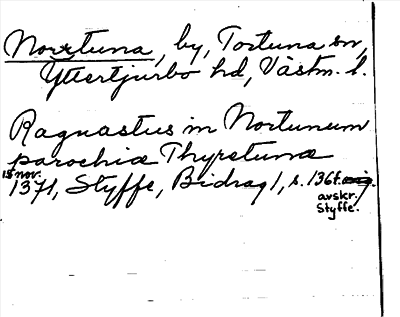 Norrtuna, by, Tortuna sn,
Yttertjurbo hd, Västm. l.
Ragnastus in Nortunum
parochia Thyrstuna
15 nov.
1371, Styffe, Bidrag 1, s. 136f.
avskr.
Styffe.